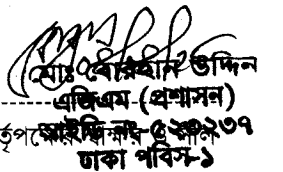 মোঃ বোরহান উদ্দিন
এজিএম (প্রশাসন)
আইডি নং-৫২০২৩৭
ঢাকা পবিস-১